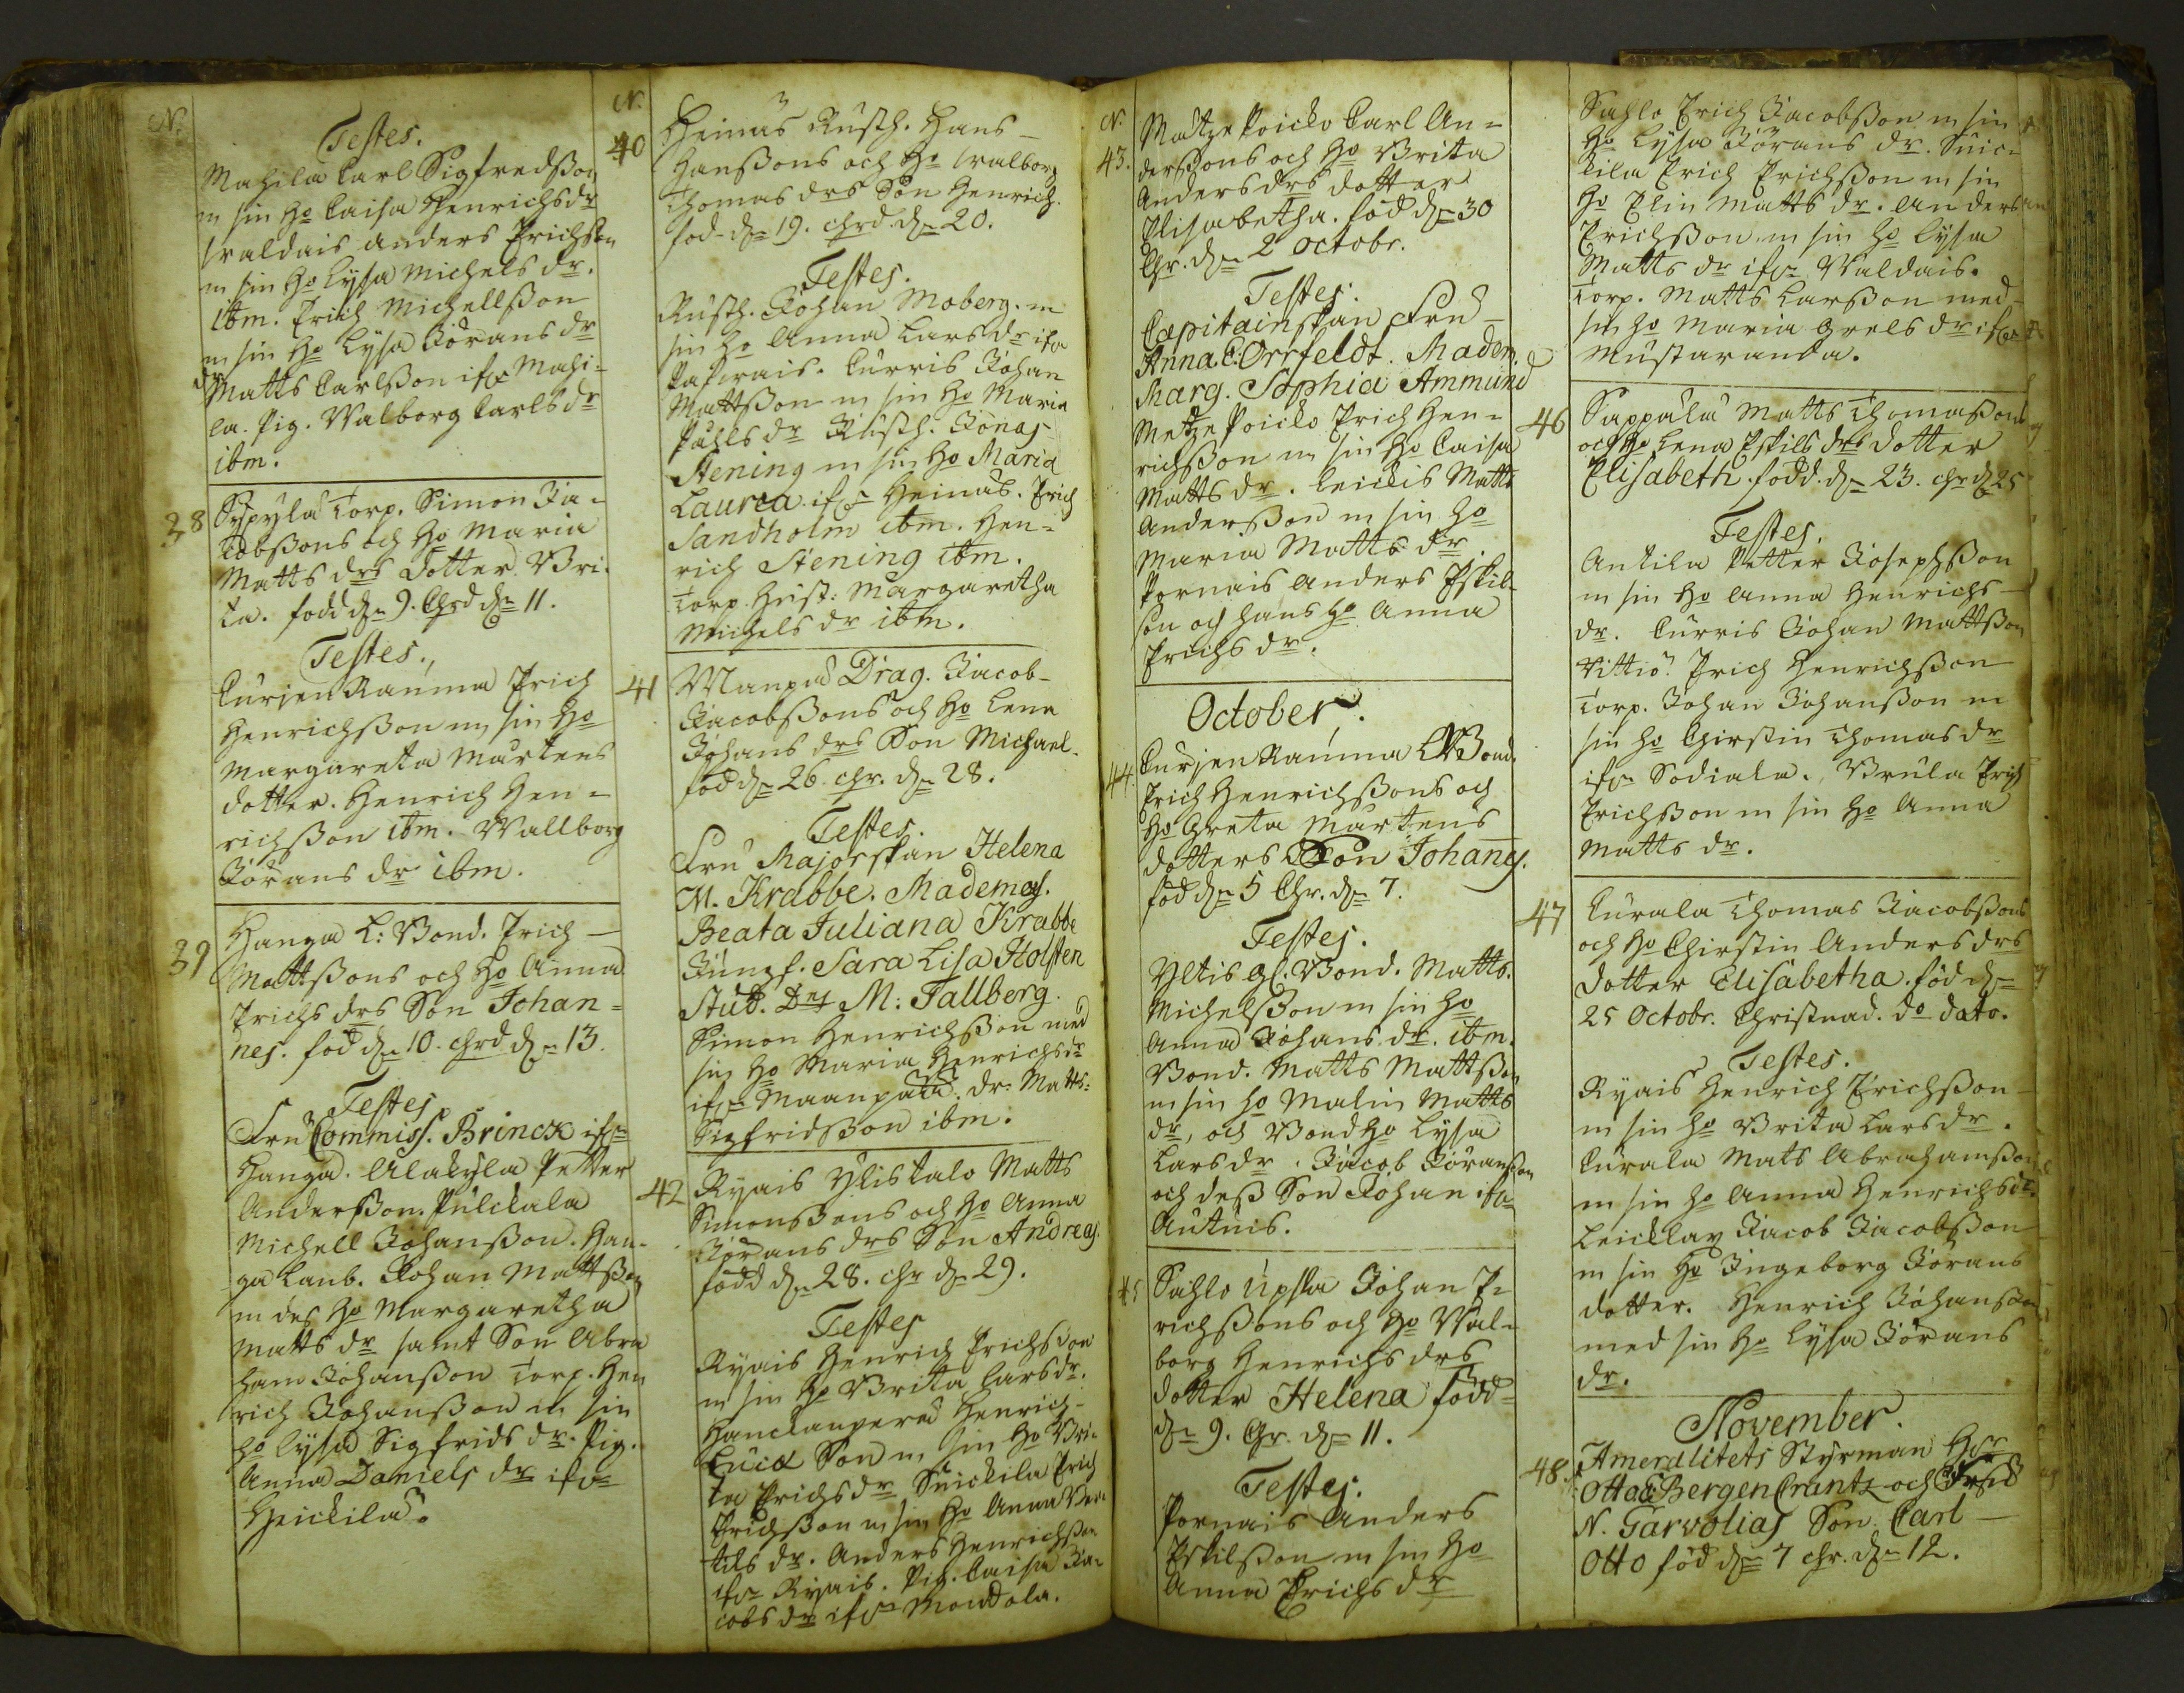 N.
Testes.
Mahila Carl Sigfredßon
m sin Ho Caisa Henrichsdr
Waldais Anders Erichßon
m sin Ho Lysa Michelsdr.
ibm. Erich Michellßon
m sin Ho Lysa Jöransdr
dr Matts Carlßon ifrn Mahi-
la. Pig. Walborg Carlsdr
ibm.
38 Sypylä Torp. Simon Ja-
cobßons och Ho Maria
Matts drs Dotter Bri-
ta. född dn 9. Chrd dn 11.
Testes.
Curjen Rauma Erich
Henrichßon m sin Ho
Margareta Martens
dotter. Henrich Hen-
richßon ibm. Wallborg
Jörans dr ibm.
39 Hanga L: Bond. Erich
Mattßons och Ho Anna
Erichs drs Son Johan-
nes. född dn 10. chrd dn 13.
Testes
Fru Commiss. Brinck ifrn
Hanga. Alakyla Petter
Anderßon. Pulckala
Michell Johanßon. Han-
ga Lanb. Johan Mattßon
m des Ho Margaretha
Matts dr samt Son Abra
ham Johanßon Torp. Hen
rich Johanßon m sin
Ho Lysa Sigfrids dr. Pig.
Anna Daniels dr ifrn
Heickilä.
N.
40 Heinäs Rusth. Hans
Hanßons och Ho Walborg
Thomas drs Son Henrich.
fod. dn 19. chrd. dn 20.
Testes.
Rusth. Johan Moberg. m
sin Ho Anna Larsdr ifrn
Curris Johan
Mattßon m sin Ho Maria
Påhls dr Rusth. Jonas
Stening m sin Ho Maria
Laurea ifrn Heinäs. Erich
Sandholm ibm. Hen-
rich Stening ibm.
Torp. Hust: Margaretha
Michels dr ibm.
41 Manpä Drag. Jacob
Jacobßons och Ho Lena
Johans drs Son Michael.
född dn 26. chr. dn 28.
Testes.
Fru Majorskan Helena
M. Krabbe. Mademois.
Beata Juliana Krabbe
Jungf. Sara Lisa Holsten
Stud. Dns M: Tallberg.
Simon Henrichßon med
sin Ho Maria Henrichsdr
ifrn Maanpää. dr. Matts
Sigfridßon ibm.
42 Ryais Ylistalo Matts
Simonßons och Ho Anna
Jörans drs Son Andreas.
född dn 28. chr dn 29.
Testes
Ryais Henrich Erichßon
m sin Ho Brita Larsdr.
Henrich
Son m sin Ho Bri-
ta Erichsdr Suickila Erich
Erichßon m sin Ho Anna Ber-
tils dr. Anders Henrichßon
ifrn Ryais. Pig. Caisa Ja-
cobs dr ifrn Montola.
N.
43. Mätze Poicko Carl An-
derßons och Ho Brita
Anders drs dotter
Elisabetha. född dn 30
Chr. dn 2 octobr.
Testes.
Capitainskan Fru
Anna C. Orrfeldt. Madem.
Marg. Sophia Ammund
Metze Poicko Erich Hen-
richßon m sin Ho Caisa
Matts dr. Leickis Matts
Anderßon m sin Ho
Maria Matts dr
Pornais Anders Eskil-
son och hans Ho Anna
Erichs dr.
October.
44. Curjen Rauma L Bond.
Erich Henrichßons och
Ho Greta Martens
dotters Son Johanes.
född dn 5 Chr. dn 7.
Testes.
Yltis gl. Bond. Matts.
Michelßon m sin Ho
Anna Johans dr. ibm.
Bond. Matts Mattßon
m sin Ho Malin Matts
dr, och Bond Ho Lysa
Larsdr. Jacob Jöranßon
och deß Son Johan ifrn
Autuis.
45 Sahlo Upsla Johan E-
richßons och Ho Wal-
borg Henrichs drs
dotter Helena född
dn 9. Chr. dn 11.
Testes.
Pornais Anders
Eskilßon m sin Ho
Anna Erichs dr
Sahlo Erich Jacobßon m sin
Ho Lysa Jörans dr. Suic-
kila Erich Erichßon m sin
Ho Elin Matts dr. Anders
Erichßon m sin Ho Lysa
Matts dr ifrn Valdais.
Torp. Matts Larßon med
sin Ho Maria Grels dr ifrn
Mustaranda.
46 Sappälä Matts Thomaßons
och Ho Lena Eskils drs dotter
Elisabeth. född. dn 23. chr dn 25
Testes.
Antila Petter Josephßon
m sin Ho Anna Henrichs
dr. Curris Johan Mattßon
Vittiö. Erich Henrichßon
Torp. Johan Johanßon m
sin Ho Chirstin Thomas dr
ifrn Sodiala. Brula Erich
Erichßon m sin Ho Anna
Matts dr.
47 Curala Thomas Jacobßons
och Ho Chirstin Anders drs
Dotter Elisabetha. född dn
25 Octobr. Christnad. do dato.
Testes.
Ryais Henrich Erichßon
m sin Ho Brita Larsdr.
Curala Mats Abrahamßon
m sin Ho Anna Henrichsdr.
Leicklax Jacob Jacobßon
m sin Ho Ingeborg Jörans
dotter. Henrich Johanßon
med sin Ho Lysa Jörans
dr.
November.
48. Ameralitets Styrman Hr
Otto BergenCrantz och Fru
N. Tarvolias Son Carl
Otto född dn 7 chr. dn 12.